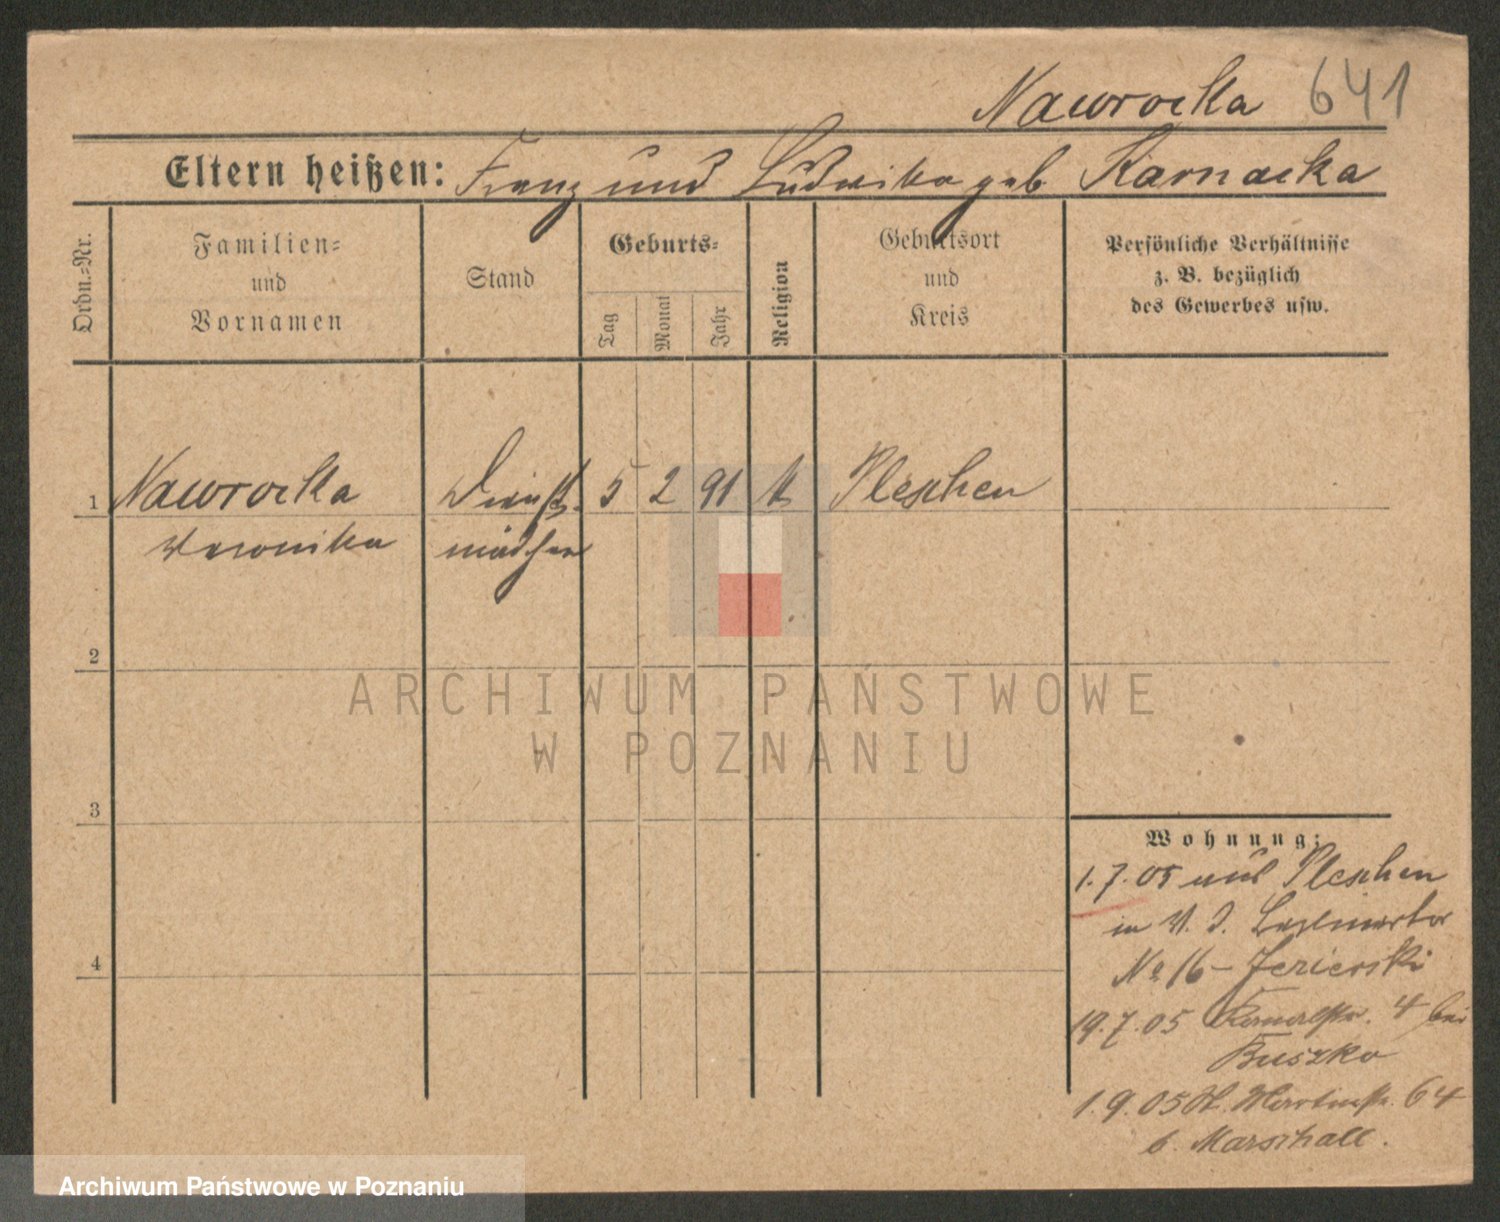 Nawrocka 641
Eltern heißen: Franz und Ludwika geb Karnacka
Ordn.=Nr.
Familien=
und
Vornamen
Stand
Geburts=
Tag
Monat
Jahr
Religion
Geburtsort
und
Kreis
Persönliche Verhältnisse
z. B. bezüglich
des Gewerbes usw.
1 Nawrocka Dienst- 5 2 91 k Pleschen
Veronika mädchen
2
ARCHIWUM PAŃSTWOWE
W POZNANIU
3
Wohnung:
1.7.05 aus Pleschen
in
No 16 - Jezierski
4
19.7.05 4 bei
Buszko
1.9.05 64
b. Marschall.
Archiwum Państwowe w Poznaniu